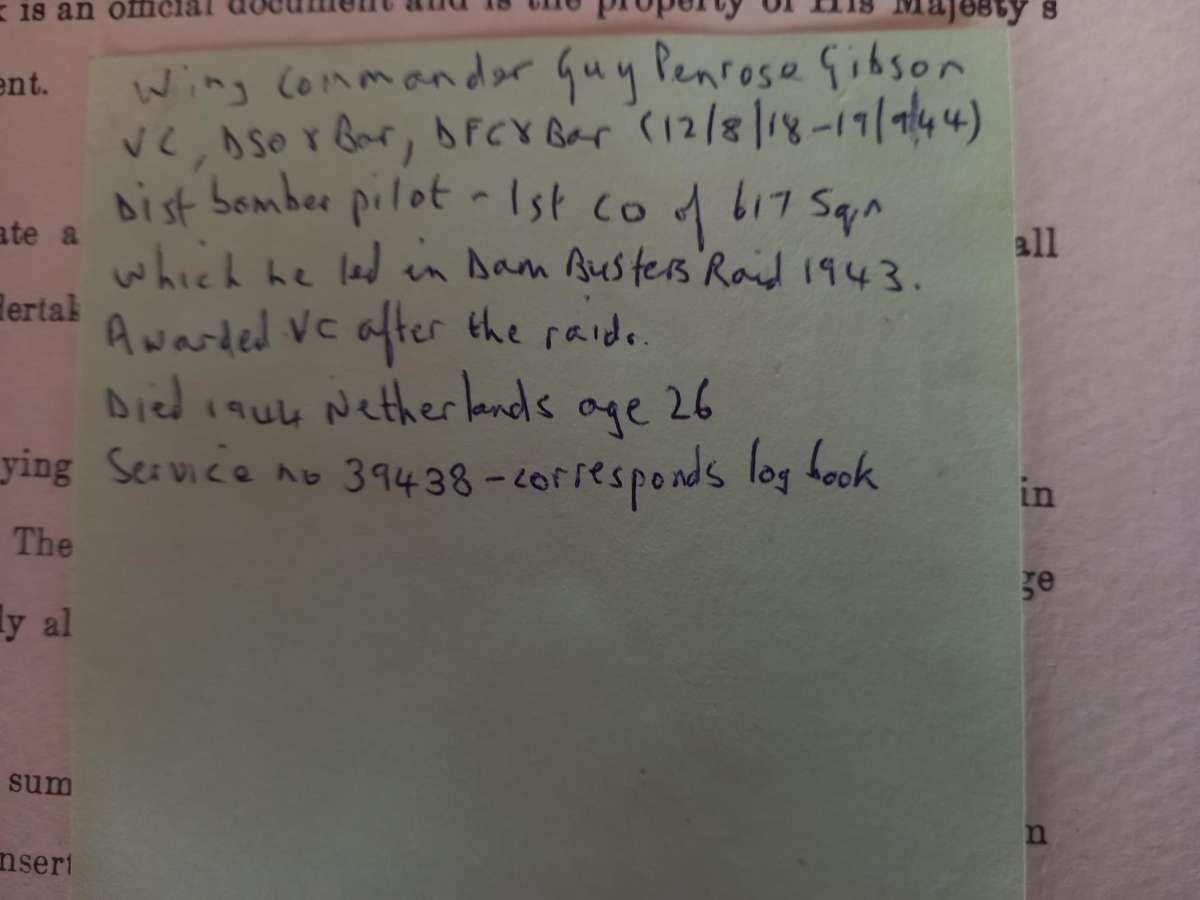 is an official document and is the property of His Majesty's
ent.
Wing Commander Guy Penrose Gibson
VC, DSO & Bar, DFC & Bar (12/8/18-19/9/44)
Dist bomber pilot - 1st CO of 617 Sqn
ate a
all
which he led in Dam Busters Raid 1943.
dertak
Awarded VC after the raid.
Died 1944 Netherlands age 26
ying
Service no 39438 - corresponds log book
in
The
ge
ly al
sum
n
nsert